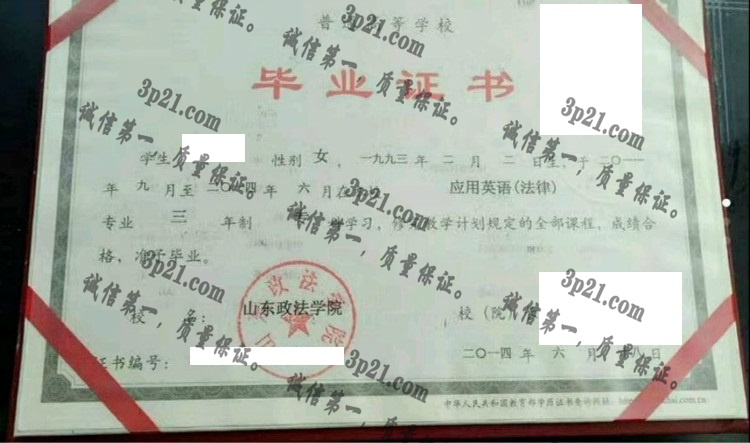 普通高等学校
毕业证书
学生 性别 女 ，一九九三 年 二 月 二 日生，于 二〇一一
年 九 月至 二〇一四 年 六 月在 应用英语(法律)
专业 三 年制 学习，修完教学计划规定的全部课程，成绩合
格，准予毕业。
山东政法学院
校 名： 校（院
证书编号： 二〇一四 年 六 月 八日
中华人民共和国教育部学历证书查询网址：
3p21.com
诚信第一，质量保证。
3p21.com
诚信第一，质量保证。
3p21.com
诚信第一，质量保证。
3p21.com
诚信第一，质量保证。
3p21.com
诚信第一，质量保证。
3p21.com
诚信第一，质量保证。
3p21.com
诚信第一，质量保证。
3p21.com
诚信第一，质量保证。